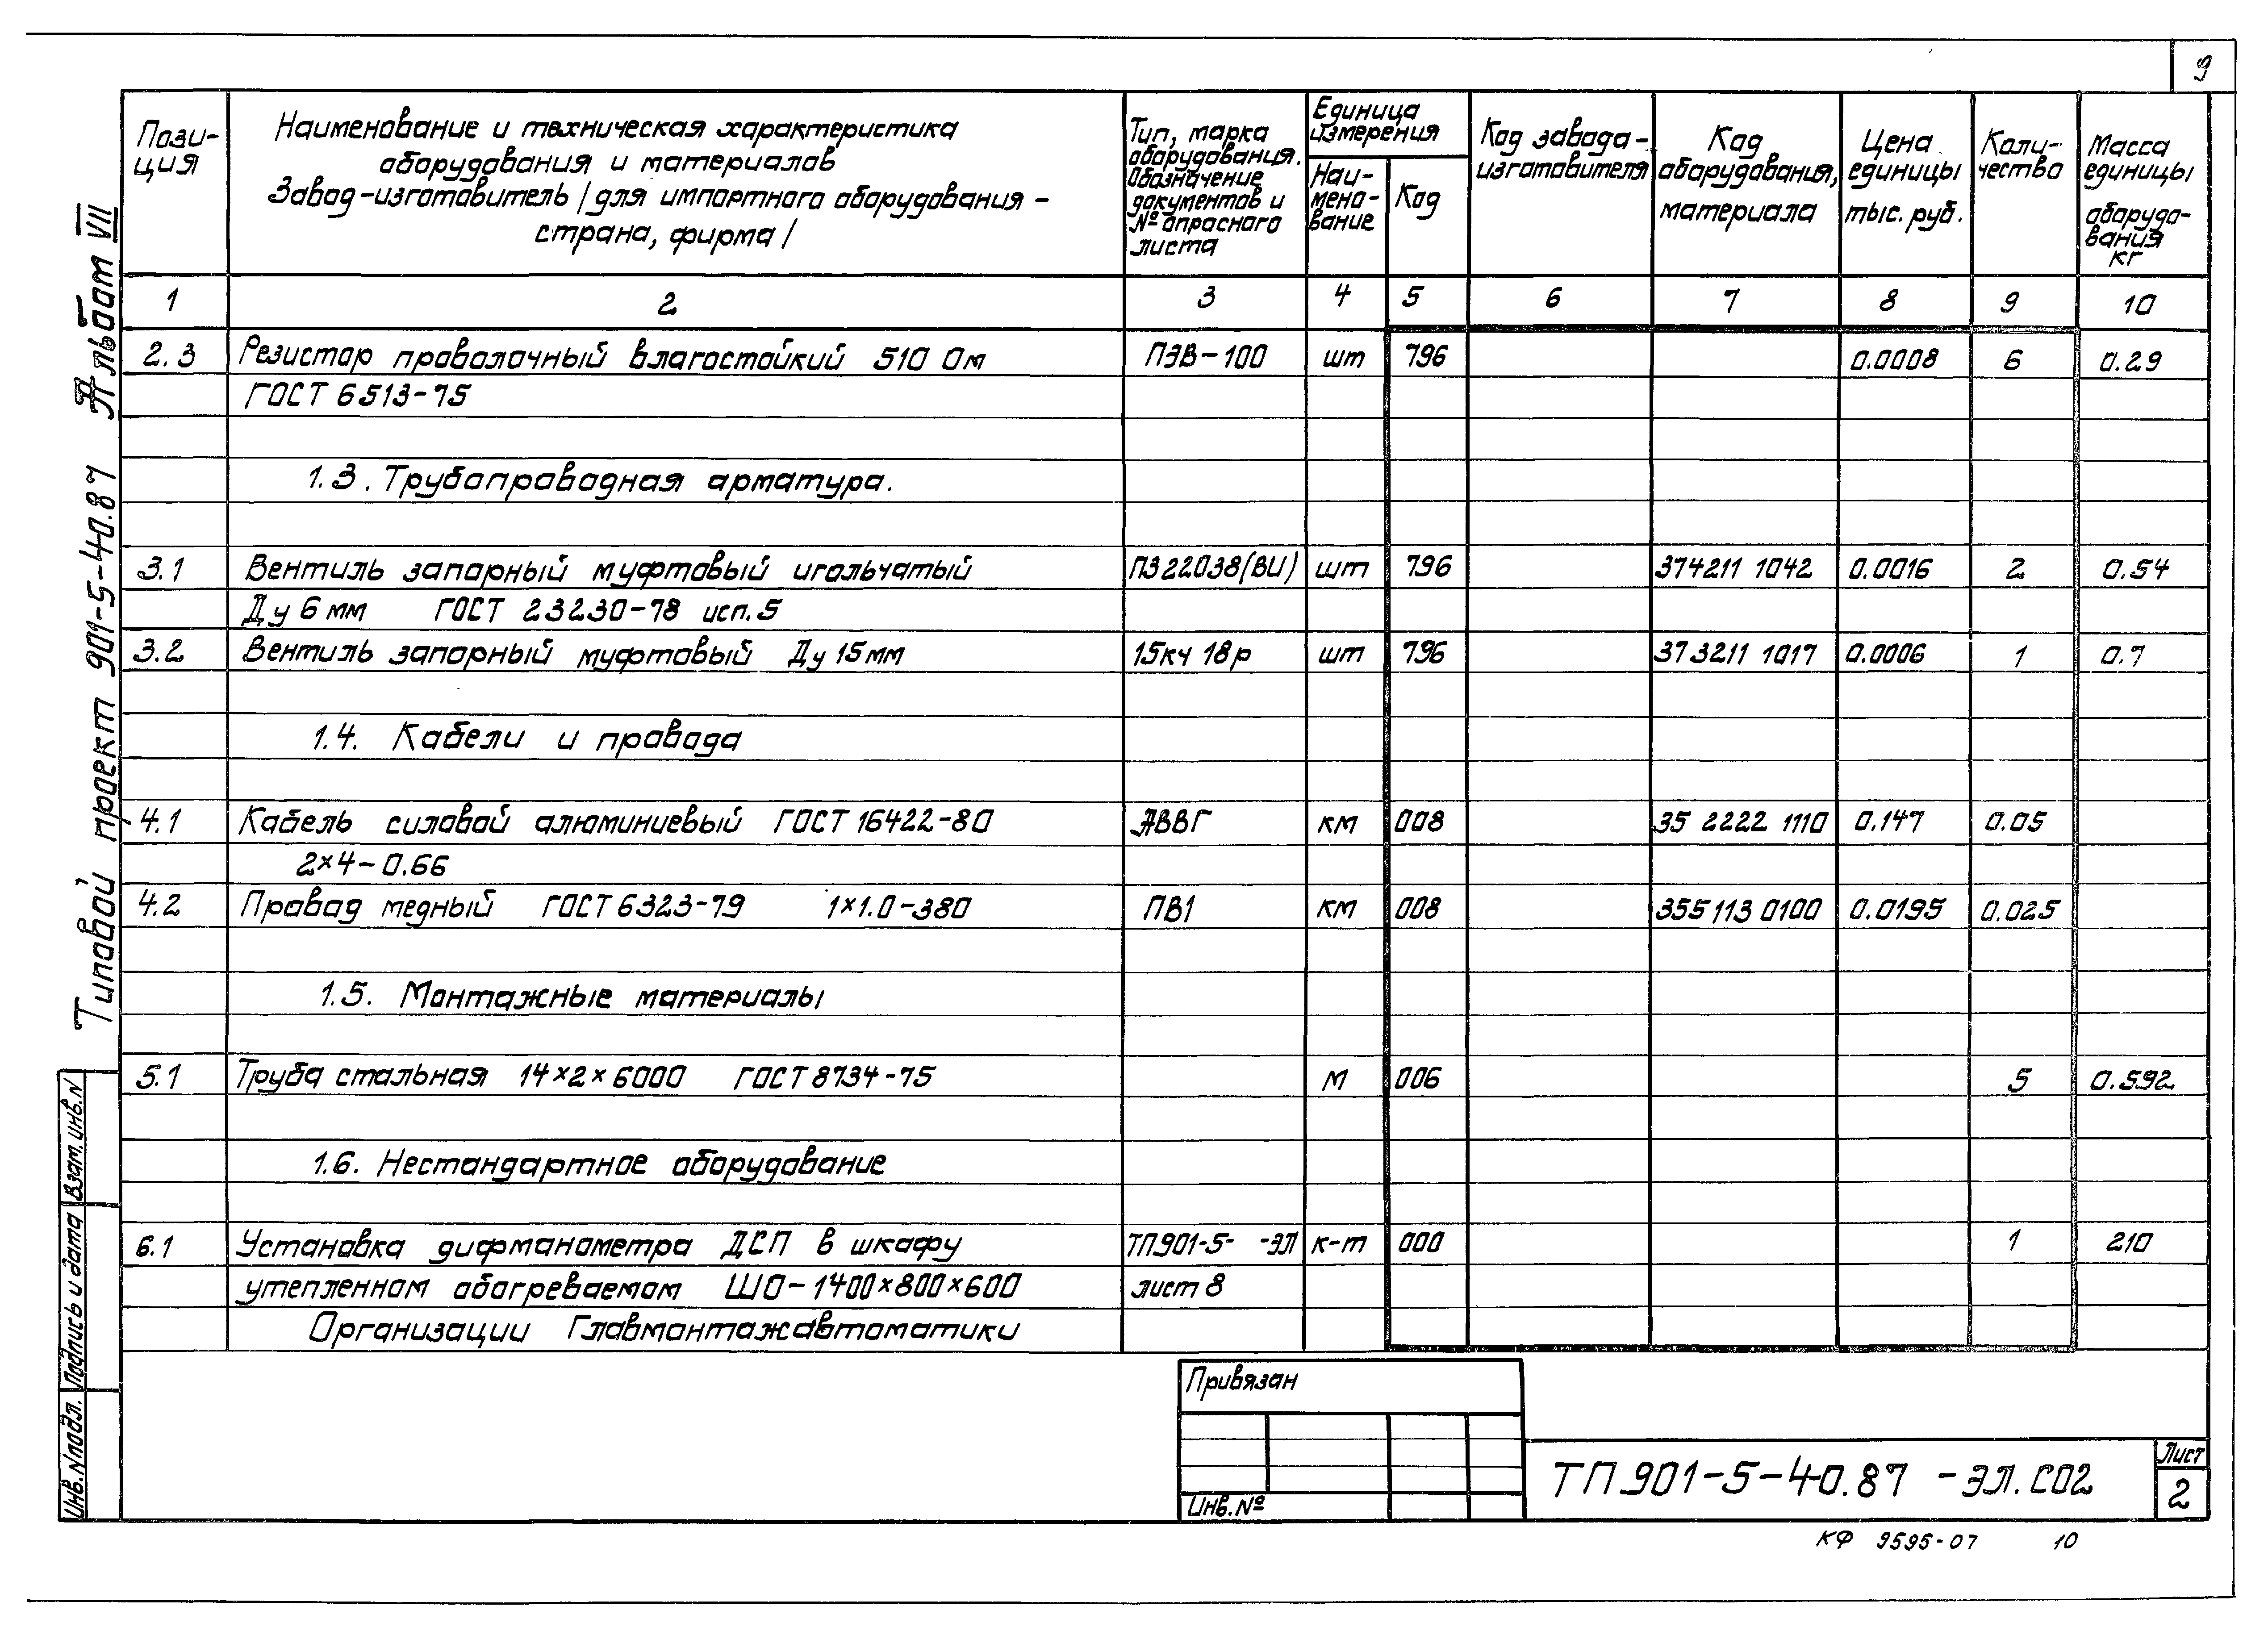 9
Пози-
ция
Наименование и техническая характеристика
оборудования и материалов
Завод-изготовитель /для импортного оборудования -
страна, фирма/
Тип, марка
оборудования.
Обозначение
документов и
№ опросного
листа
Единица
измерения
Наи-
мено-
вание
Код
Код завода-
изготовителя
Код
оборудования,
материала
Цена
единицы
тыс. руб.
Коли-
чество
Масса
единицы
оборудо-
вания
кг
1 2 3 4 5 6 7 8 9 10
2.3 Резистор проволочный влагостойкий 510 Ом ПЭВ-100 шт 796 0.0008 6 0.29
ГОСТ 6513-75
1.3. Трубопроводная арматура.
3.1 Вентиль запорный муфтовый игольчатый ПЗ22038(ВИ) шт 796 374211 1042 0.0016 2 0.54
Ду 6 мм ГОСТ 23230-78 исп. 5
3.2 Вентиль запорный муфтовый Ду 15 мм 15кч 18р шт 796 373211 1017 0.0006 1 0.7
1.4. Кабели и провода
4.1 Кабель силовой алюминиевый ГОСТ 16422-80 АВВГ км 008 35 2222 1110 0.147 0.05
2×4-0.66
4.2 Провод медный ГОСТ 6323-79 1×1.0-380 ПВ1 км 008 355113 0100 0.0195 0.025
1.5. Монтажные материалы
5.1 Труба стальная 14×2×6000 ГОСТ 8734-75 м 006 5 0.592
1.6. Нестандартное оборудование
6.1 Установка дифманометра ДСП в шкафу ТП901-5- -ЭЛ к-т 000 1 210
утепленном обогреваемом ШО-1400×800×600 лист 8
Организации Главмонтажавтоматики
Типовой проект 901-5-40.87 Альбом VII
Взам. инв. N
Подпись и дата
Инв. N подл.
Привязан
Инв. №
ТП 901-5-40.87 -ЭЛ.СО2
Лист
2
КФ 9595-07 10